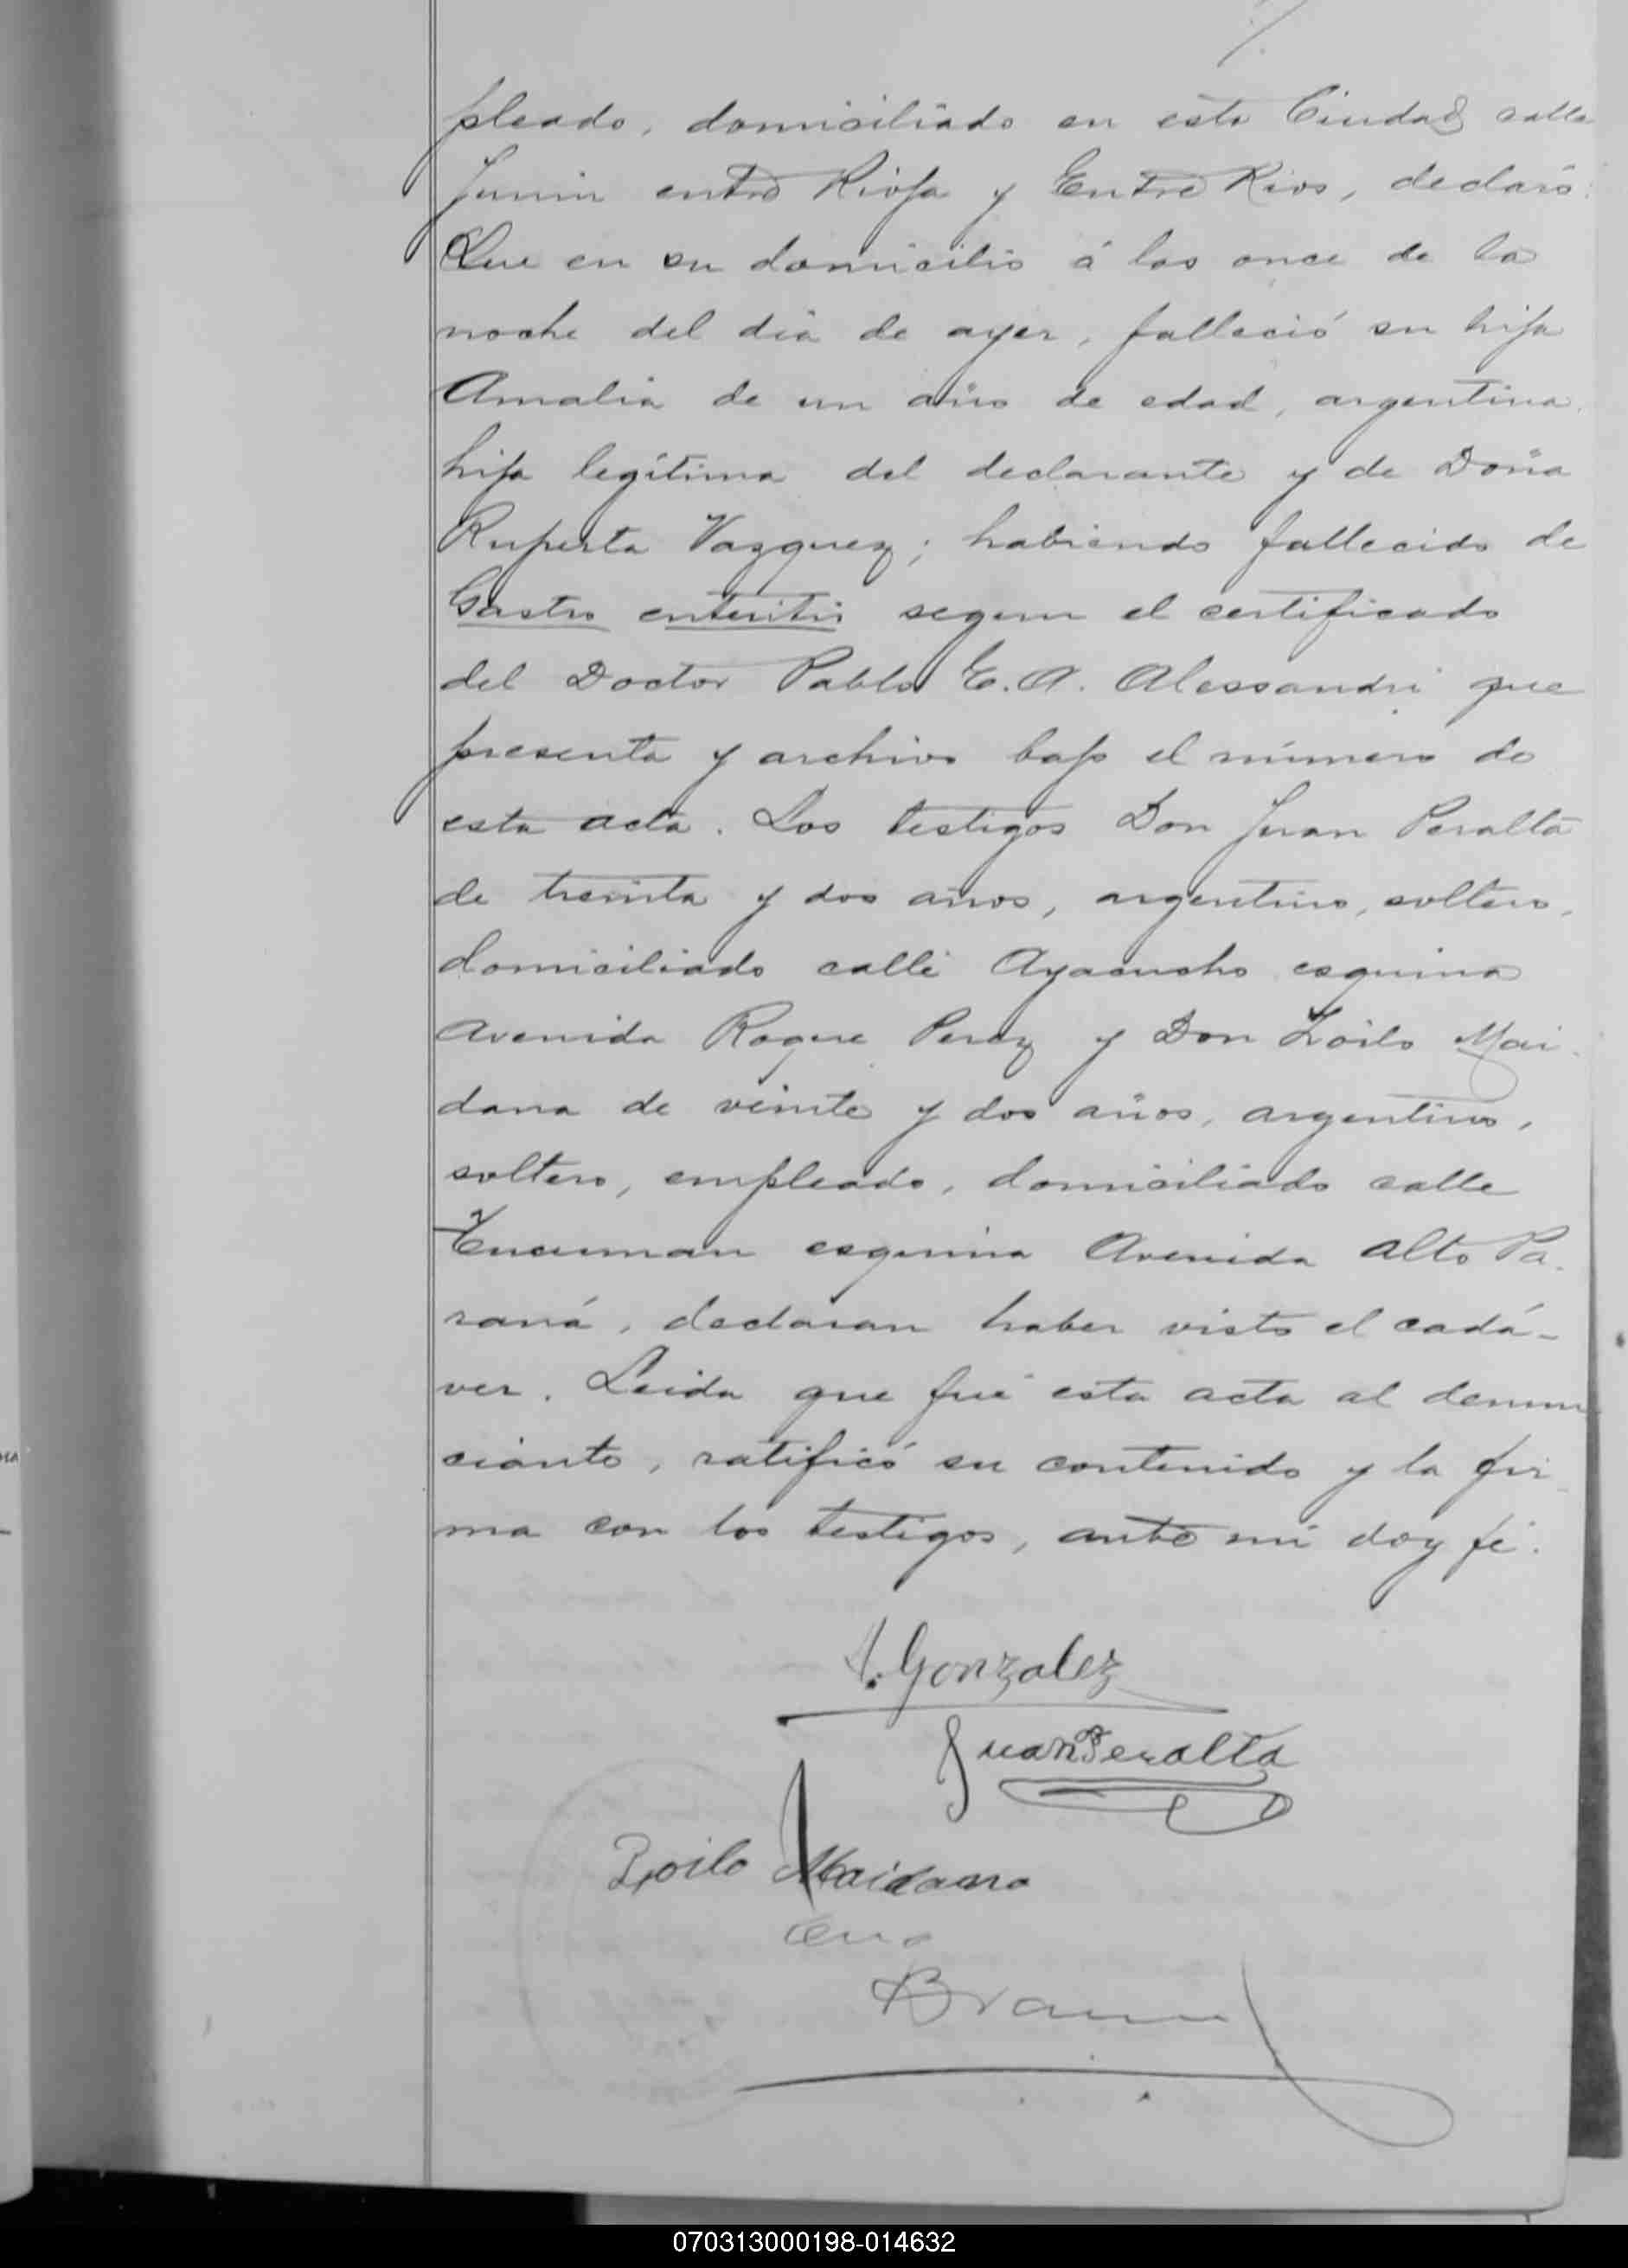 pleado, domiciliado en esta Ciudad calle
Junin entre Rioja y Entre Rios, declaró:
Que en su domicilio á las once de la
noche del dia de ayer, falleció su hija
Amalia de un año de edad, argentina,
hija legítima del declarante y de Doña
Ruperta Vazquez; habiendo fallecido de
Gastro enteritis segun el certificado
del Doctor Pablo E. A. Alessandri que
presenta y archivo bajo el número de
esta acta. Los testigos Don Juan Peralta
de treinta y dos años, argentino, soltero,
domiciliado calle Ayacucho esquina
Avenida Roque Perez y Don Zoilo Mai-
dana de veinte y dos años, argentino,
soltero, empleado, domiciliado calle
Tucuman esquina Avenida Alto Pa-
raná, declaran haber visto el cadá-
ver. Leida que fué esta acta al denun
ciante, ratificó su contenido y la fir
ma con los testigos, ante mi doy fé.
Gonzalez
Juan Peralta
Zoilo Maidana
070313000198-014632